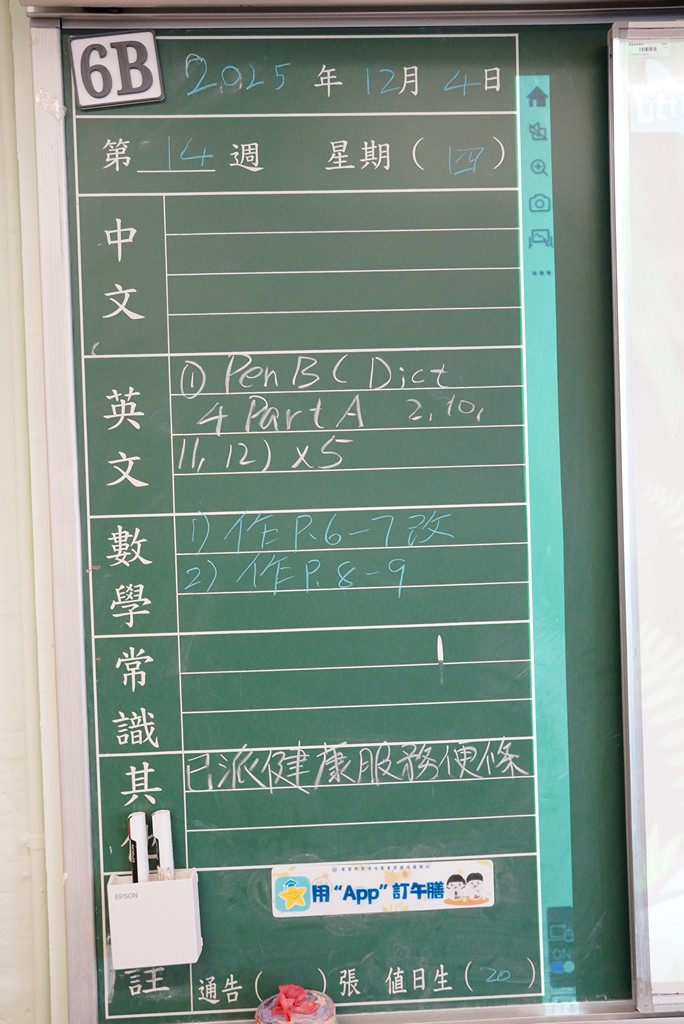 6B 2025年12月4日
第14週 星期(四)
中文
英文
① Pen B ( Dict
4 Part A 2, 10,
11, 12) x5
數學
1) 作P.6-7改
2) 作P.8-9
常識
其
已派健康服務便條
EPSON
用“App”訂午膳
註
通告( )張 值日生(20)
ON